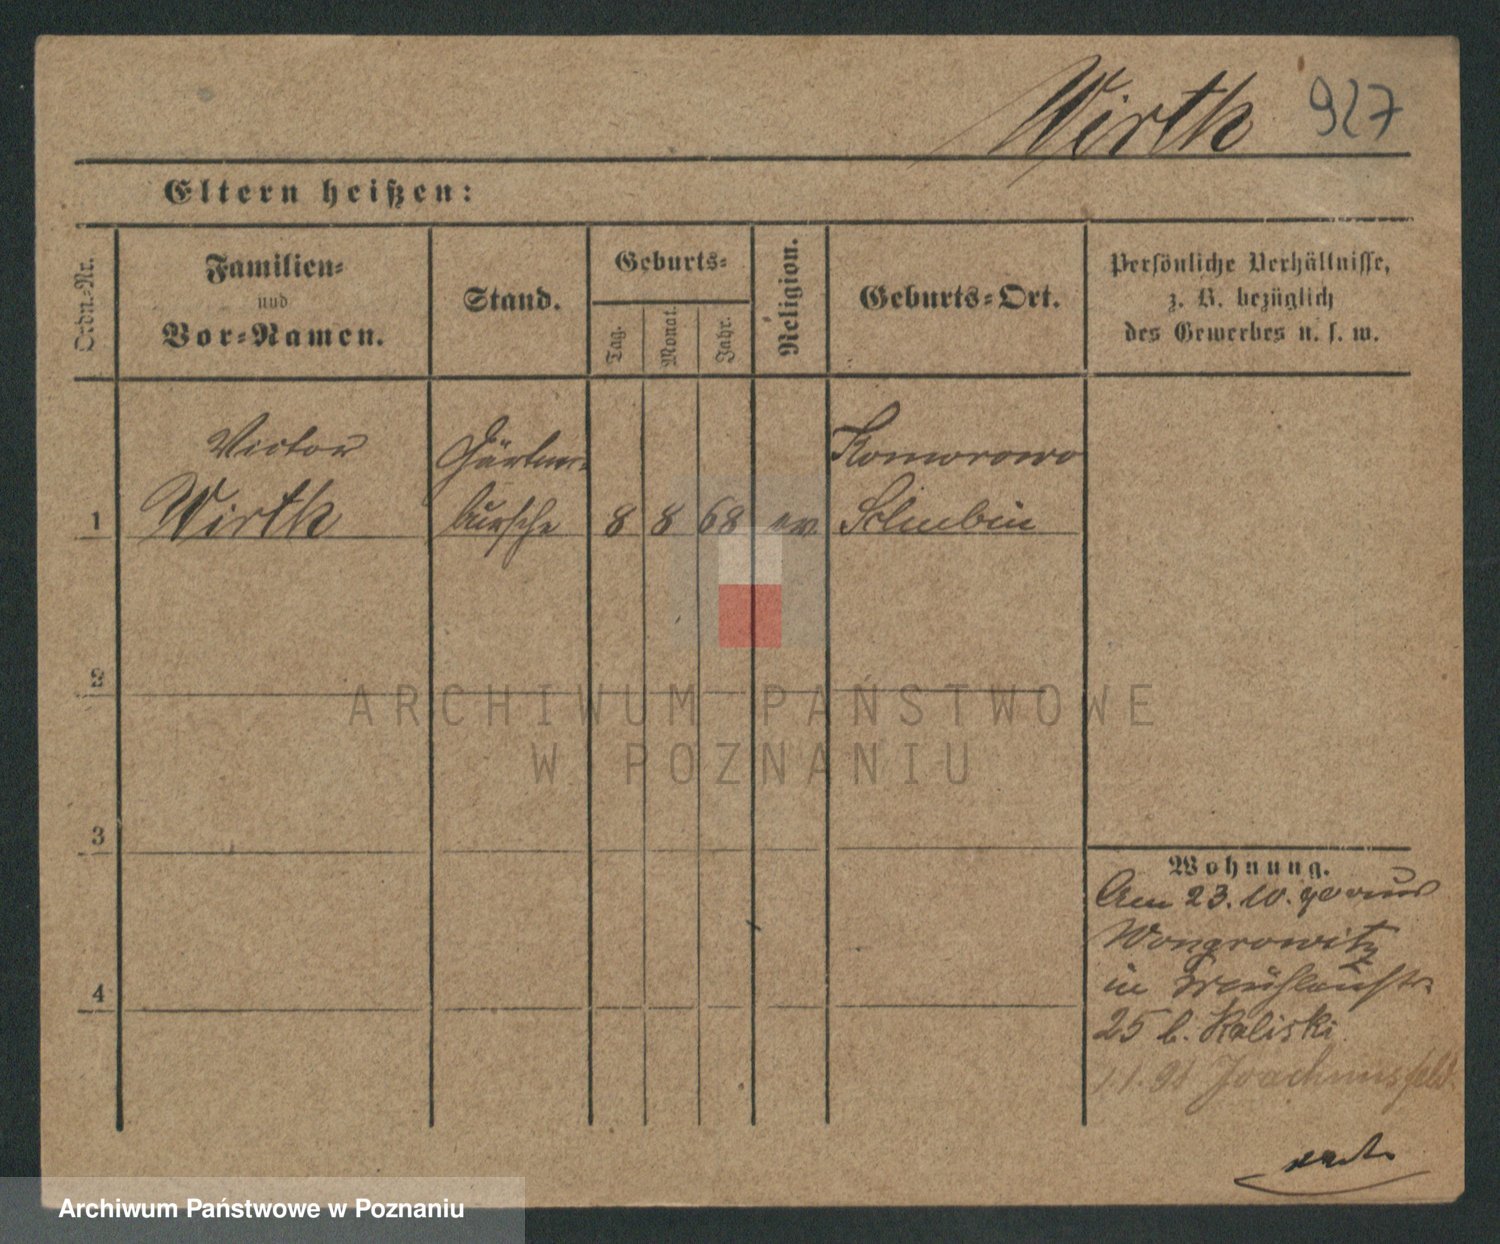 Wirth 927
Eltern heißen:
Ordn.-Nr.
Familien-
und
Vor-Namen.
Stand.
Geburts-
Tag.
Monat.
Jahr.
Religion.
Geburts-Ort.
Persönliche Verhältnisse,
z. B. bezüglich
des Gewerbes u. s. w.
Victor Gärtner- Komorowo
1 Wirth bursche 8 8 68 ev. Schubin
2
3
4
Wohnung.
Am 23. 10. 90 aus
Wongrowitz
in
25 b. Kaliski
1.1.91 Joachimsfeld
ARCHIWUM PAŃSTWOWE
W POZNANIU
Archiwum Państwowe w Poznaniu